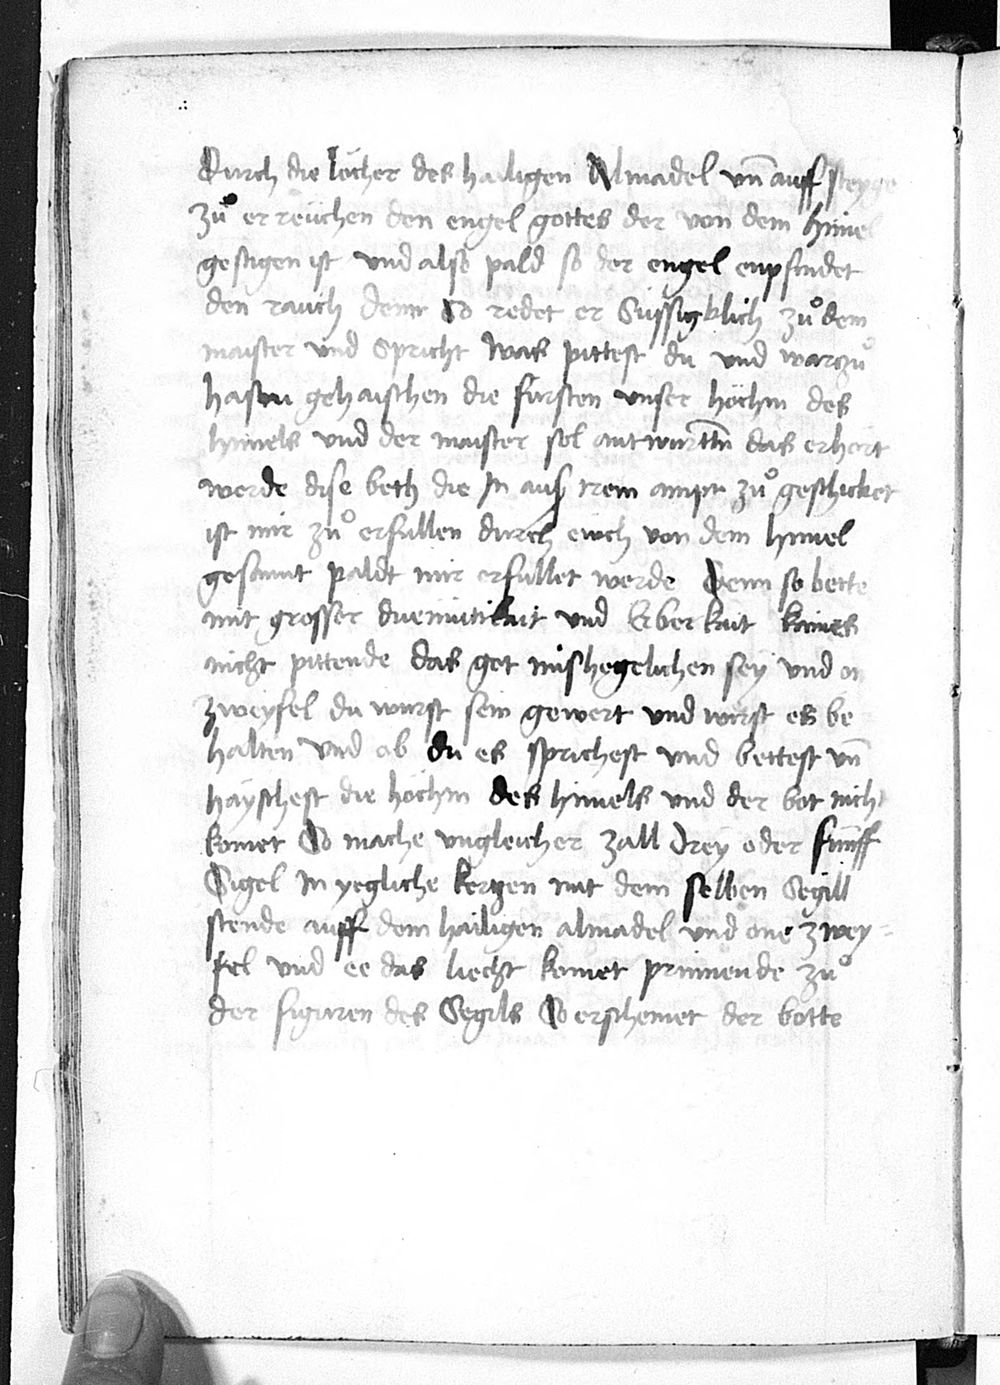 Durch die löcher des hailigen Almadel vn̄ auff steyge
zů erreüchen den engel gottes der von dem himel
gestigen ist vnd also pald so der engel enpfindet
den rauch denn So redet er Süssigklich zů dem
maister vnd Spricht was pittest du vnd warzů
hastu gehaischen die fürsten vnser höchin des
himels vnd der maister sol antwurttn̄ das erhört
werde dise beth die In aus irem ampt zů geschicket
ist mir zů erfullen durch ewch von dem himel
gesannt paldt mir erfullet werde Denn so bette
mit grosser diemütikait vnd Erberkait kaines
nicht pittende das got mishegelichen sey vnd on
zweyfel du wirst sein gewert vnd wirst es be
halten vnd ob du es sprichest vnd bettest vn̄
hayschest die höchin des himels vnd der bot nicht
komet So mache vngleicher zall drey oder fünff
Sigel In yegliche kertzen mit dem selben Segill
stende auff dem hailigen almadel vnd one zwey-
fel vnd ee das liecht komet prinnende zů
der figuren des Segils So erscheinet der botte